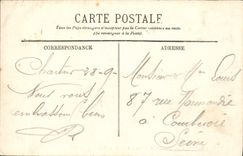 CARTE POSTALE
Tous les Pays étrangers n'acceptent pas la Correspondance au recto
(se renseigner à la Poste).
CORRESPONDANCE
ADRESSE
Chartres 28-9
Nous vous
embrassons bien
Monsieur & Mme Louis
87 rue Normandie
à Courbevoie
Seine